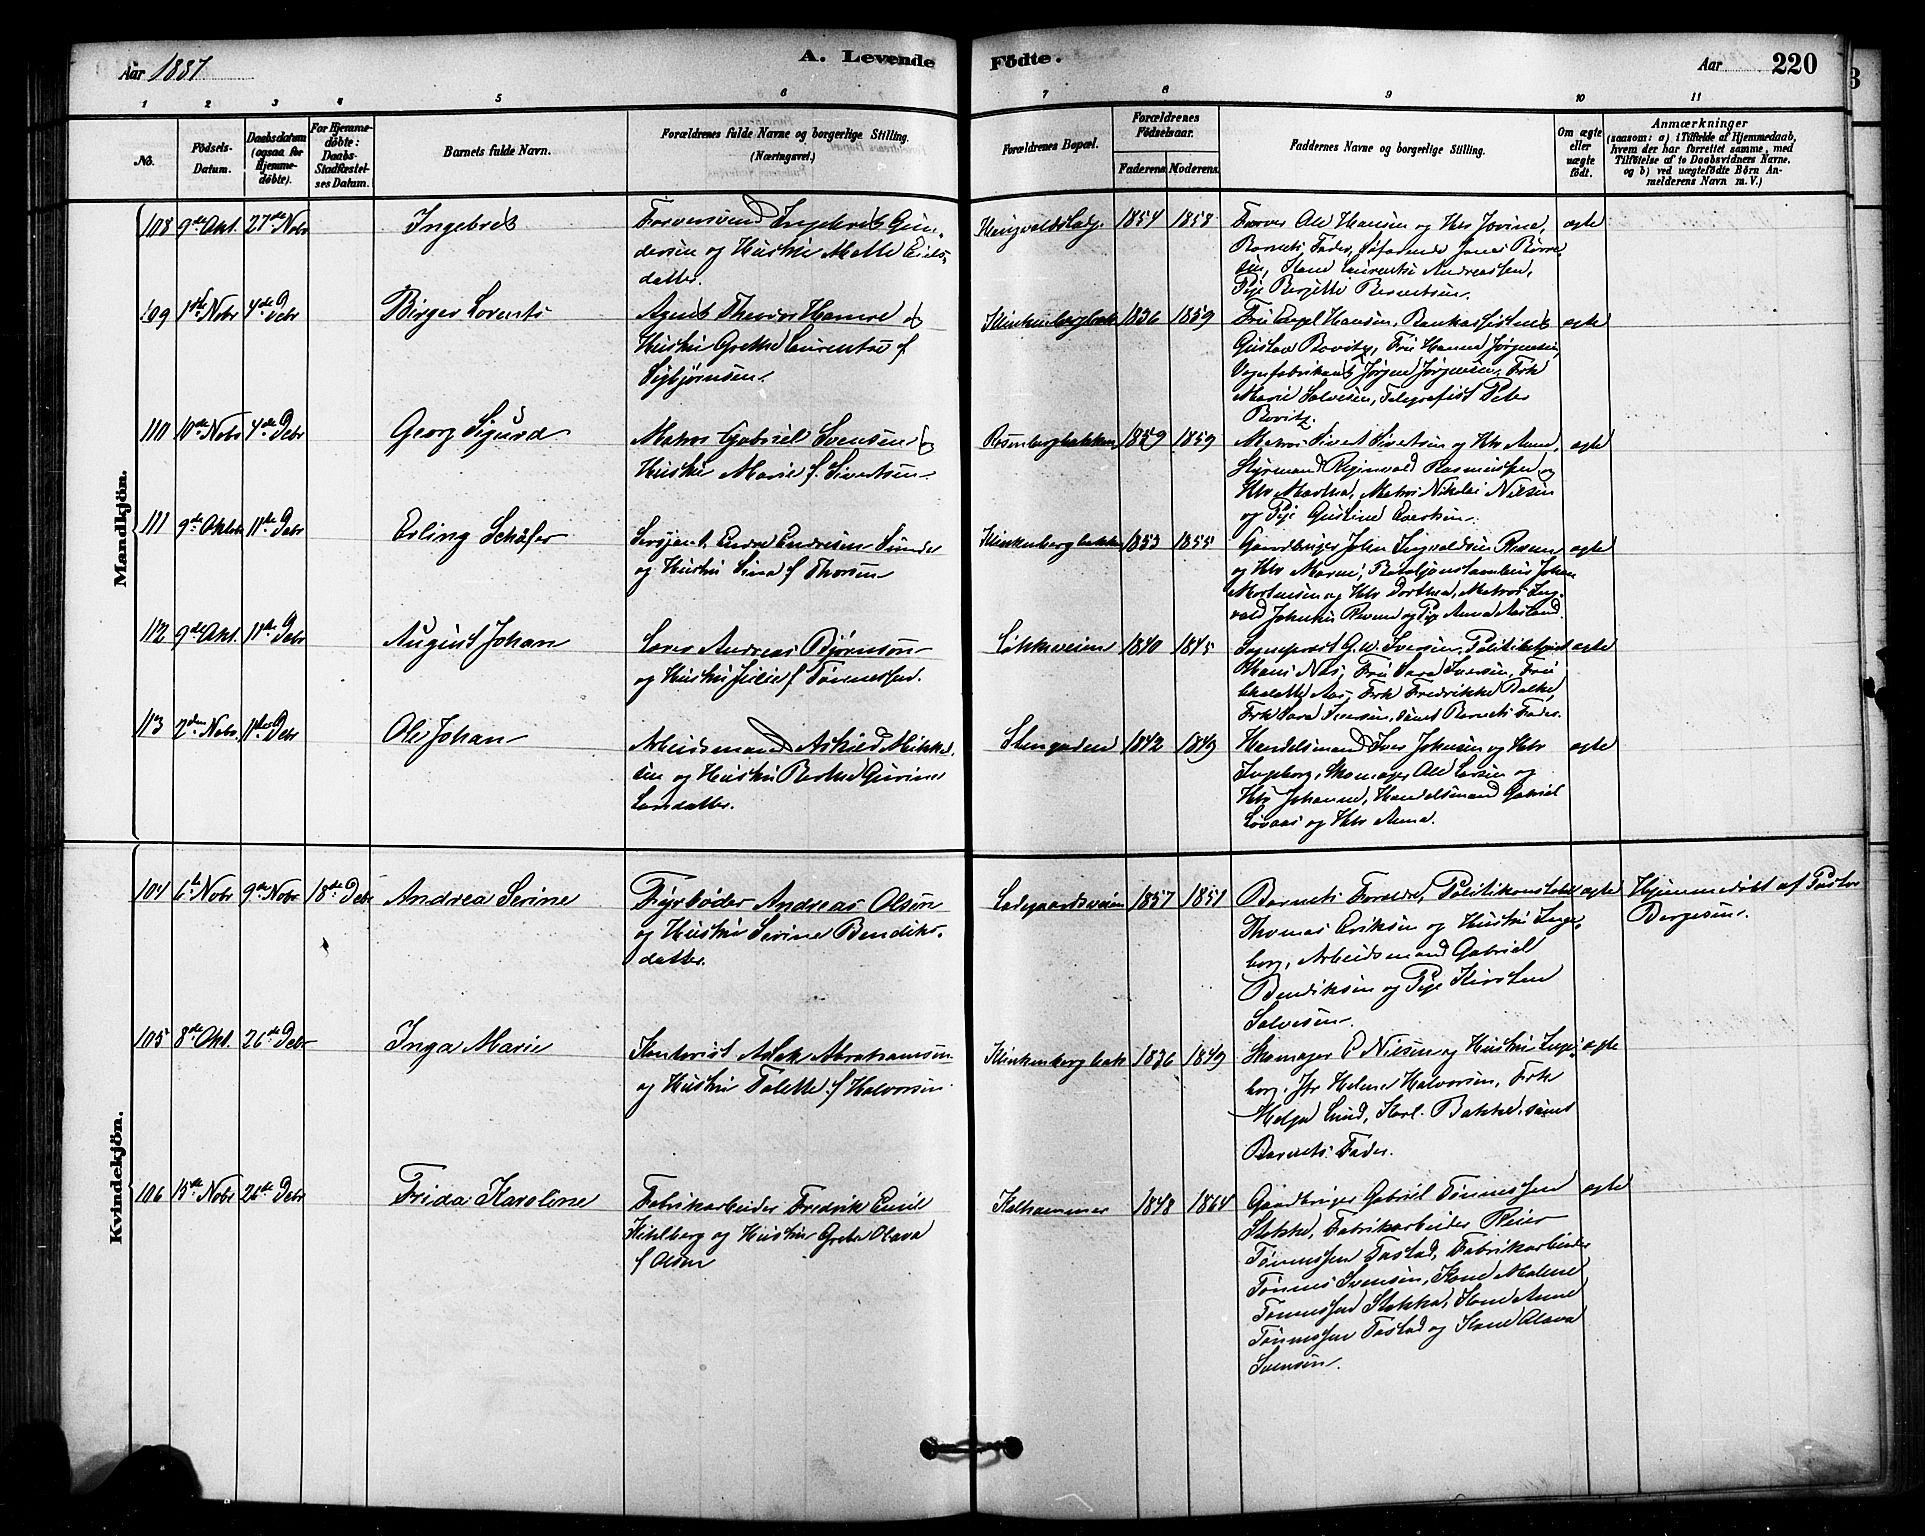 Aar 1887
A. Levende
Födte.
Aar
220
1 2 3 4 5 6 7 8 9 10 11
No.
Födsels-Datum.
Daabsdatum (ogsaa for Hjemme-döbte).
For Hjemme-döbte: Daabs-Stadfæstel-ses Datum.
Barnets fulde Navn.
Forældrenes fulde Navne og borgerlige Stilling.
(Næringsvei.)
Forældrenes Bopæl.
Forældrenes Födselsaar.
Faderens. Moderens.
Faddernes Navne og borgerlige Stilling.
Om ægte eller uægte födt.
Anmærkninger
(saasom: a) i Tilfælde af Hjemmedaab, hvem der har forrettet samme, med Tilföielse af to Daabsvidners Navne, og b) ved uægtefödte Børn An-melderens Navn m. V.)
Mandkjön.
108 9de Okt. 27de Nobr Ingebret
Farversvend Ingebret Gun-
dersen og Hustru Mette Eiels-
datter.
Kongvaldsladg. 1854 1858
Farver Ole Hansen og Hv Jorine,
Barnets Fader, Søfarende Jonas Børre-
sen, Kone Laurentse Andreassen,
Pige Bergitte Berentsen.
ægte
109 1ste Nobr 4de Debr Birger Lorents
Agent Theodor Hamre og
Hustru Grethe Laurentse f.
Sigbjørnsen.
Klinkenbergbak 1836 1859
Fru Engel Hansen, Bankassistent
Gustav Rovitz, Fru Hanna Jørgensen,
Vognfabrikant Jørgen Jørgensen, Frk
Marie Salvesen, Telegrafist Peter
Rovitz.
ægte
110 10de Nobr 4de Debr Georg Sigurd
Matros Gabriel Svensen og
Hustru Marie f. Sivertsen.
Rosenbergbakken 1859 1859
Matros Sivert Sivertsen og Hv Anna,
Styrmand Reginvald Rasmussen og
Hv Martha, Matros Nikolai Nielsen
og Pige Gustine Evertsen.
ægte
111 9de Oktob 11te Debr Erling Schäfer
Sersjant Endre Endresen Sunde
og Hustru Sina f Thorsen
Klinkenbergbakke 1853 1855
Gaardbruger John Ingvaldsen Revem
og Hv Maren, Bataljonstambur Johan
Mortensen og Hv Dorthea, Matros Ing-
vald Johnsen Revem og Pige Anna Aasland.
ægte
112 9de Okt. 11te Debr August Johan
Lars Andreas Bjørnson
og Hustru Silie f Tønnessen.
Løkkeveien 1840 1845
Sogneprest G. W. Iversen, Politibetjent
Hans Næs, Fru Sara Iversen, Fru
Chalotte Aas, Frk Fredrikke Balke,
Frk Sara Iversen, samt Barnets Fader.
ægte
113 2den Nobr. 11te Debr Ole Johan
Arbeidsmand Askild Mikkel-
sen og Hustru Berthe Gurine
Larsdatter.
Stengaden 1842 1849
Handelsmand Iver Johnsen og Hv
Ingeborg, Skomager Ole Larsen og
Hv Johanna, Handelsmand Gabriel
Lovaas og Hv Anna.
ægte
Kvindekjön.
104 6te Nobr 9de Nobr 18de Debr Andrea Serine
Fyrbøder Andreas Olsen
og Hustru Serine Bendiks-
datter.
Ladegaardsveien 1857 1851
Barnets Forældre, Politikonstabel
Thomas Eriksen og Hustru Inge-
borg, Arbeidsmand Gabriel
Bendiksen og Pige Kirsten
Salvesen.
ægte
Hjemmedøbt af Pastor
Børgesen.
105 8de Okt. 26de Debr Inga Marie
Kontorist Aslak Abrahamsen
og Hustru Talette f. Halvorsen
Klinkenbergbak 1836 1849
Skomager E Nielsen og Hustru Inge-
borg, Jfr Helene Halvorsen, Frk
Helga Lund, Karl. Bakke, samt
Barnets Fader.
ægte
106 15de Nobr 26de Debr Frida Karoline
Fabrikarbeider Fredrik Emil
Kihlberg og Hustru Grete Olava
f Olsen
Kalhammer 1848 1864
Gaardbruger Gabriel Tønnessen
Stokke, Fabrikarbeider Reier
Tønnessen Tastad, Fabrikarbeider
Tønnes Svensen, Kone Malene
Tønnessen Stokka, Kone Anne
Tønnessen Tastad og Kone Olava
Svensen.
ægte